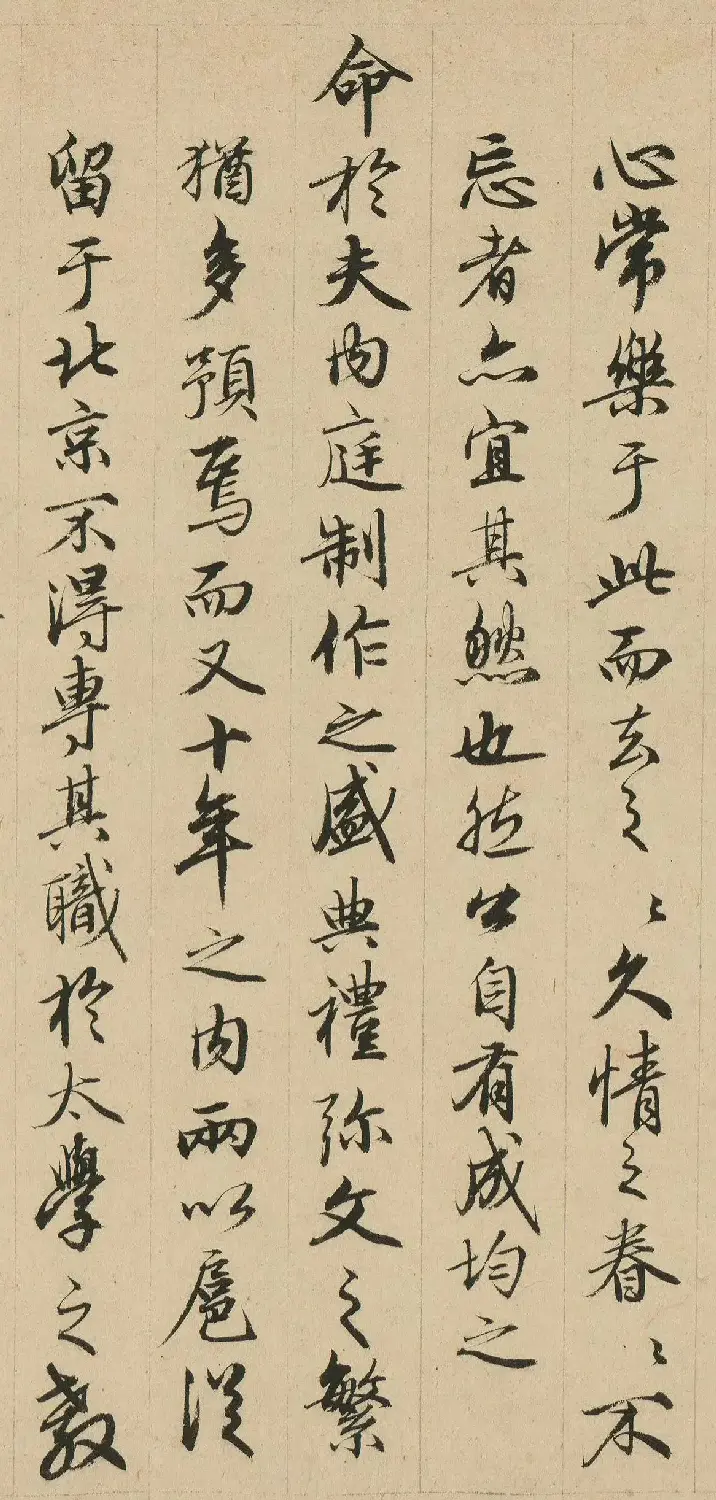 心常樂于此而去之〻久情之眷〻不
忘者亦宜其然也然公自有成均之
命於夫內庭制作之盛典禮弥文之繁
猶多預焉而又十年之內兩以扈從
留于北京不得專其職於太學之教